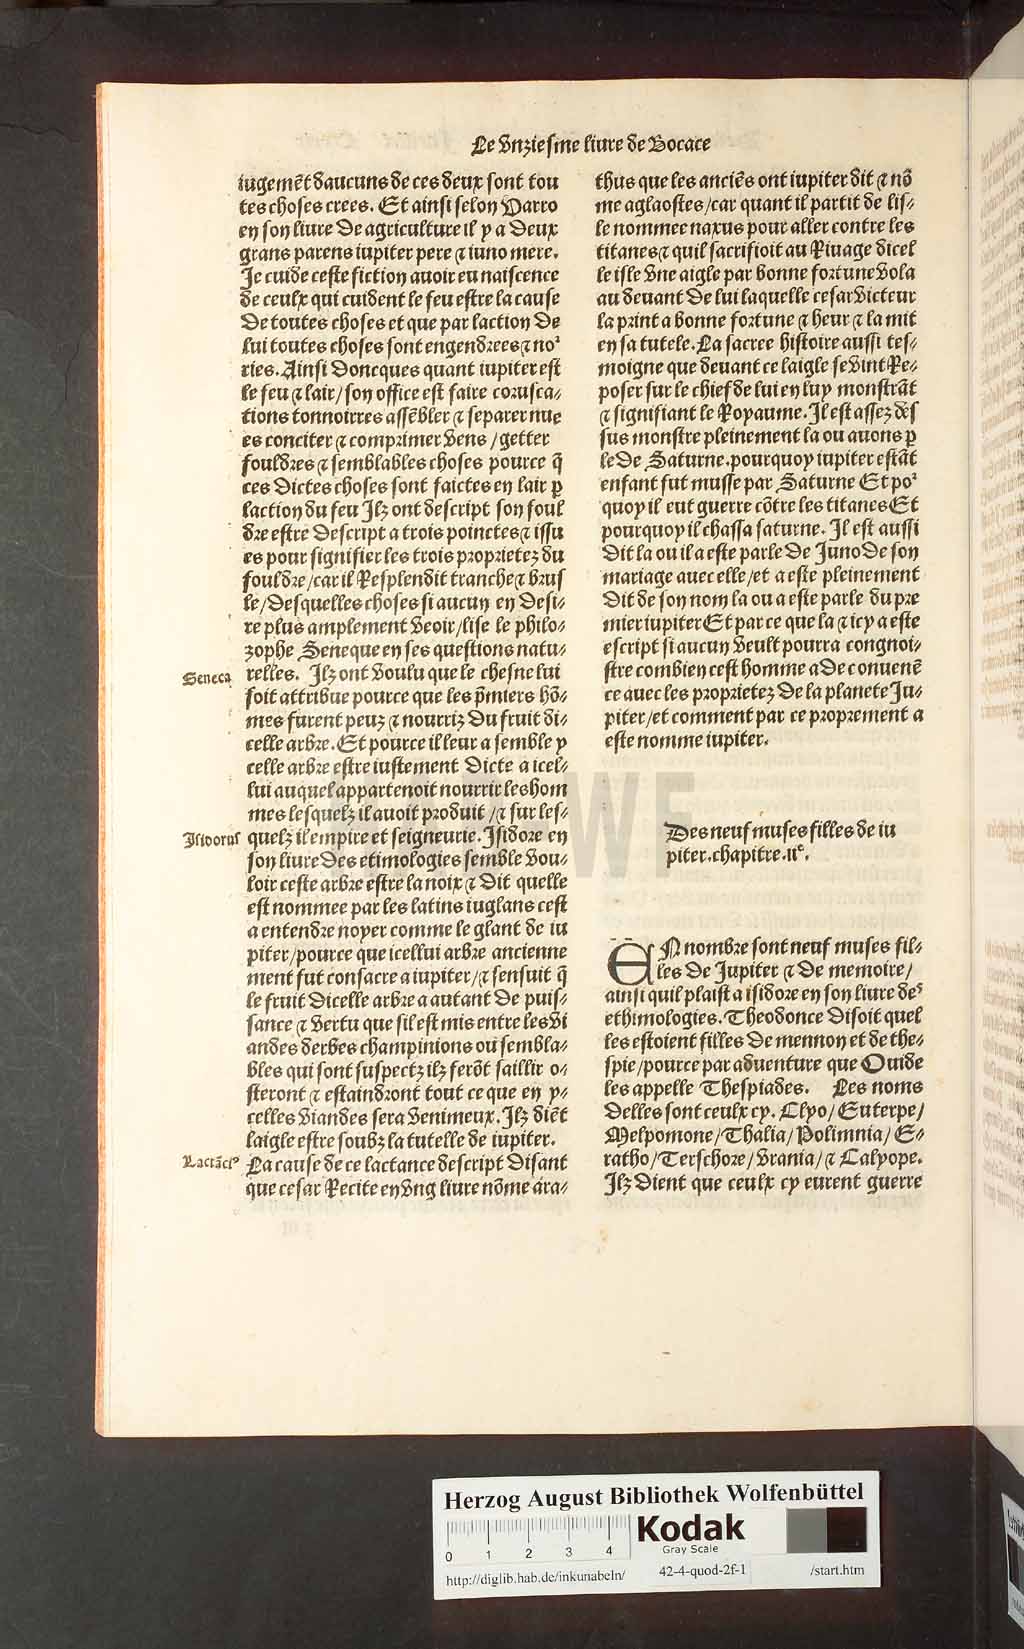 Le vnziesme liure de Bocace
iugemẽt daucuns de ces deux sont tou
tes choses crees. Et ainsi selon Varro
en son liure de agriculture il y a deux
grans parens iupiter pere ⁊ iuno mere.
Je cuide ceste fiction auoir eu naiscence
de ceulx qui cuident le feu estre la cause
de toutes choses et que par laction de
lui toutes choses sont engendrees ⁊ no²
ries. Ainsi doncques quant iupiter est
le feu ⁊ lair/ son office est faire corusca⸗
tions tonnoirres assẽbler ⁊ separer nue
es conciter ⁊ comprimer vens /getter
fouldres ⁊ semblables choses pource q̃
ces dictes choses sont faictes en lair ꝑ
laction du feu Ilz ont descript son foul
dre estre descript a trois poinctes ⁊ issu
es pour signifier les trois proprietez du
fouldre /car il Resplendit tranche ⁊ brus
le/desquelles choses si aucun en desi⸗
re plus amplement veoir/lise le philo⸗
zophe Seneque en ses questions natu⸗
Seneca
relles. Ilz ont voulu que le chesne lui
soit attribue pource que les p̃miers hõ⸗
mes furent peuz ⁊ nourriz du fruit di⸗
celle arbre. Et pource il leur a semble y
celle arbre estre iustement dicte a icel⸗
lui auquel appartenoit nourrir les hom
mes lesquelz il auoit produit /⁊ sur les⸗
Isidorus
quelz il empire et seigneurie. Isidore en
son liure des etimologies semble vou⸗
loir ceste arbre estre la noix ⁊ dit quelle
est nommee par les latins iuglans cest
a entendre noyer comme le glant de iu
piter/pource que icellui arbre ancienne
ment fut consacre a iupiter/⁊ sensuit q̃
le fruit dicelle arbre a autant de puis⸗
sance ⁊ vertu que sil est mis entre les vi
andes derbes champinions ou sembla⸗
bles qui sont suspectz ilz ferõt saillir o⸗
steront ⁊ estaindront tout ce que en y⸗
celles viandes sera venimeux. Ilz diẽt
laigle estre soubz la tutelle de iupiter.
Lactãci⁹
La cause de ce lactance descript disant
que cesar Recite en vng liure nõme ara⸗
thus que les anciẽs ont iupiter dit ⁊ nõ
me aglaostes /car quant il partit de lis⸗
le nommee naxus pour aller contre les
titanes ⁊ quil sacrifioit au Riuage dicel
le isle vne aigle par bonne fortune vola
au deuant de lui laquelle cesar victeur
la print a bonne fortune ⁊ heur ⁊ la mit
en sa tutele. La sacree histoire aussi tes⸗
moigne que deuant ce laigle se vint Re⸗
poser sur le chief de lui en luy monstrãt
⁊ signifiant le Royaume. Il est assez des
sus monstre pleinement la ou auons ꝑ
le de Saturne. pourquoy iupiter estãt
enfant fut musse par Saturne Et po²
quoy il eut guerre cõtre les titanes Et
pourquoy il chassa saturne. Il est aussi
dit la ou il a este parle de Juno de son
mariage auec elle/et a este pleinement
dit de son nom la ou a este parle du pre
mier iupiter Et par ce que la ⁊ icy a este
escript si aucun veult pourra congnoi⸗
stre combien cest homme a de conuenẽ
ce auec les proprietez de la planete Ju⸗
piter/et comment par ce proprement a
este nomme iupiter.
Des neuf muses filles de iu
piter. chapitre .iie.
EN nombre sont neuf muses fil⸗
les de Jupiter ⁊ de memoire/
ainsi quil plaist a isidore en son liure des
ethimologies. Theodonce disoit quel
les estoient filles de mennon et de the⸗
spie/pource par aduenture que Ouide
les appelle Thespiades. Les noms
delles sont ceulx cy. Clyo/Euterpe/
Melpomone/Thalia/Polimnia/E⸗
ratho/Terschore/vrania/⁊ Calyope.
Ilz dient que ceulx cy eurent guerre
HAB-WF
Herzog August Bibliothek Wolfenbüttel
0 1 2 3 4
Kodak
Gray Scale
http://diglib.hab.de/inkunabeln/ 42-4-quod-2f-1 /start.htm